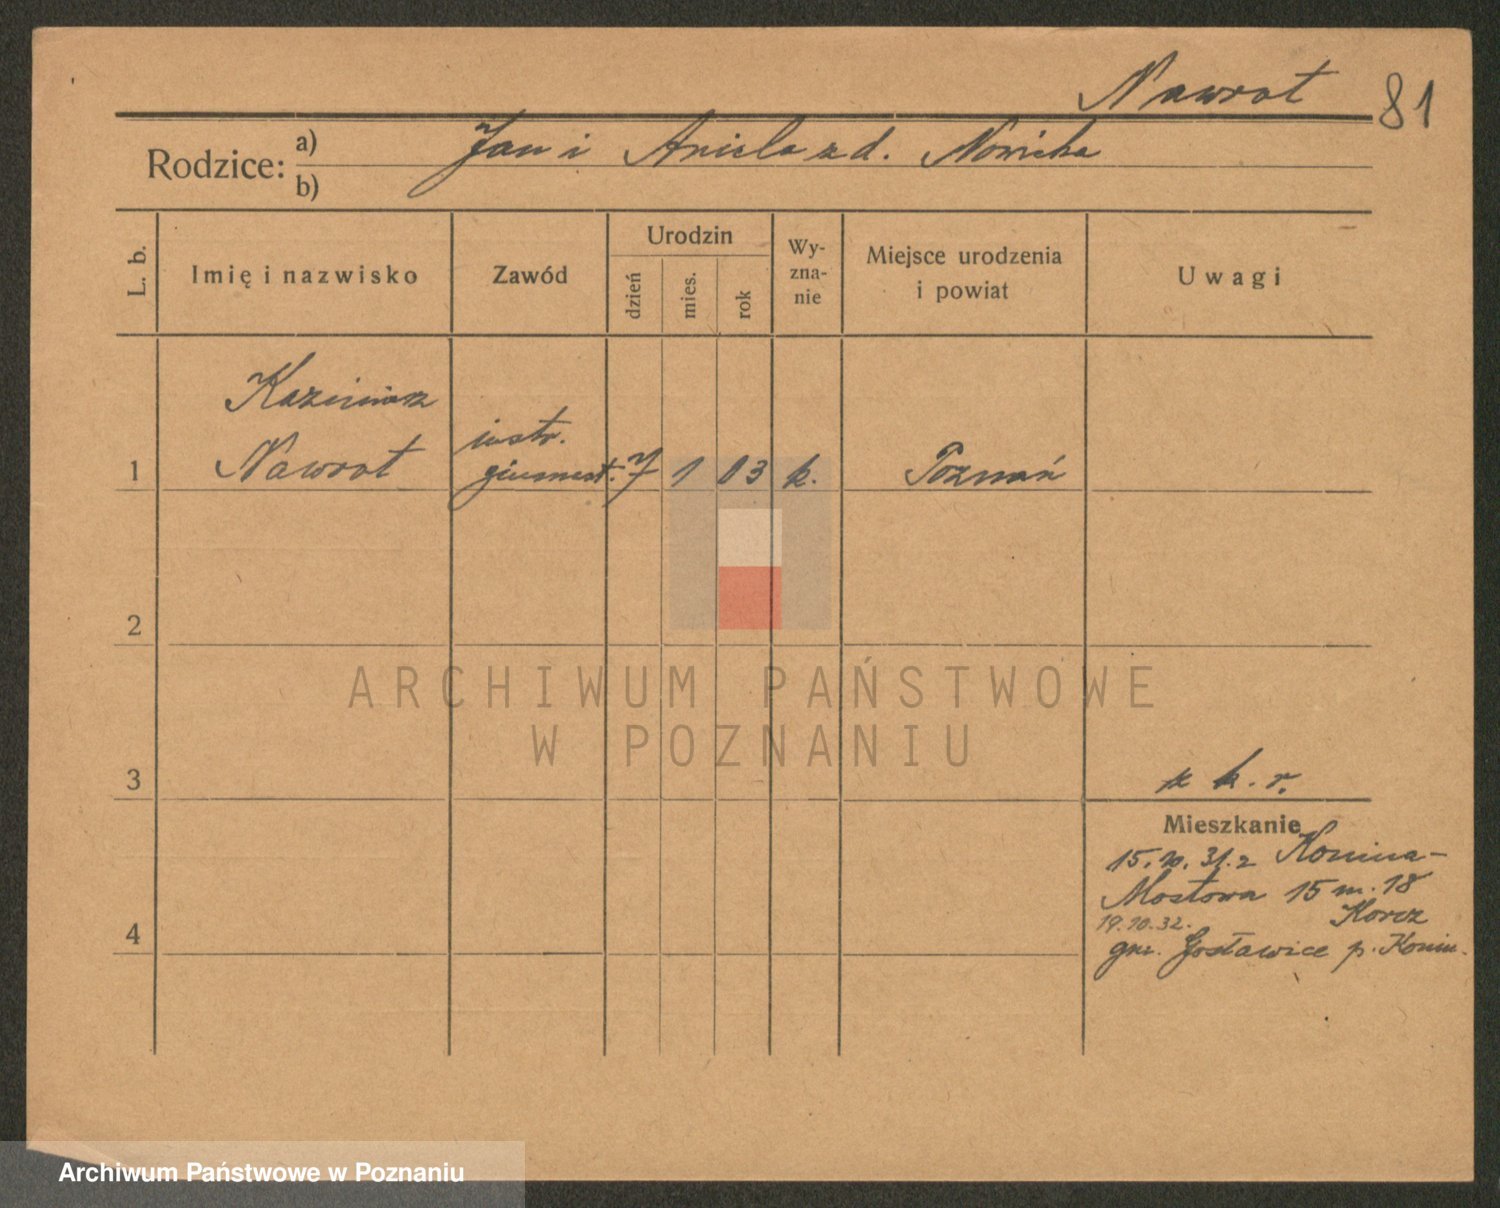 Nawrot 81
Rodzice: a) Jan i Aniela z d. Nowicka
b)
L. b.
Imię i nazwisko
Zawód
Urodzin
dzień
mies.
rok
Wy-
zna-
nie
Miejsce urodzenia
i powiat
Uwagi
Kazimierz
1 Nawrot
instr.
gimnast. 7 1 03 k. Poznań
2
ARCHIWUM PAŃSTWOWE
W POZNANIU
3
k. r.
Mieszkanie
15.10.31. z Konina-
Mostowa 15 m. 18
19.10.32. Korcz
4
gm. Gosławice p. Konin.
Archiwum Państwowe w Poznaniu